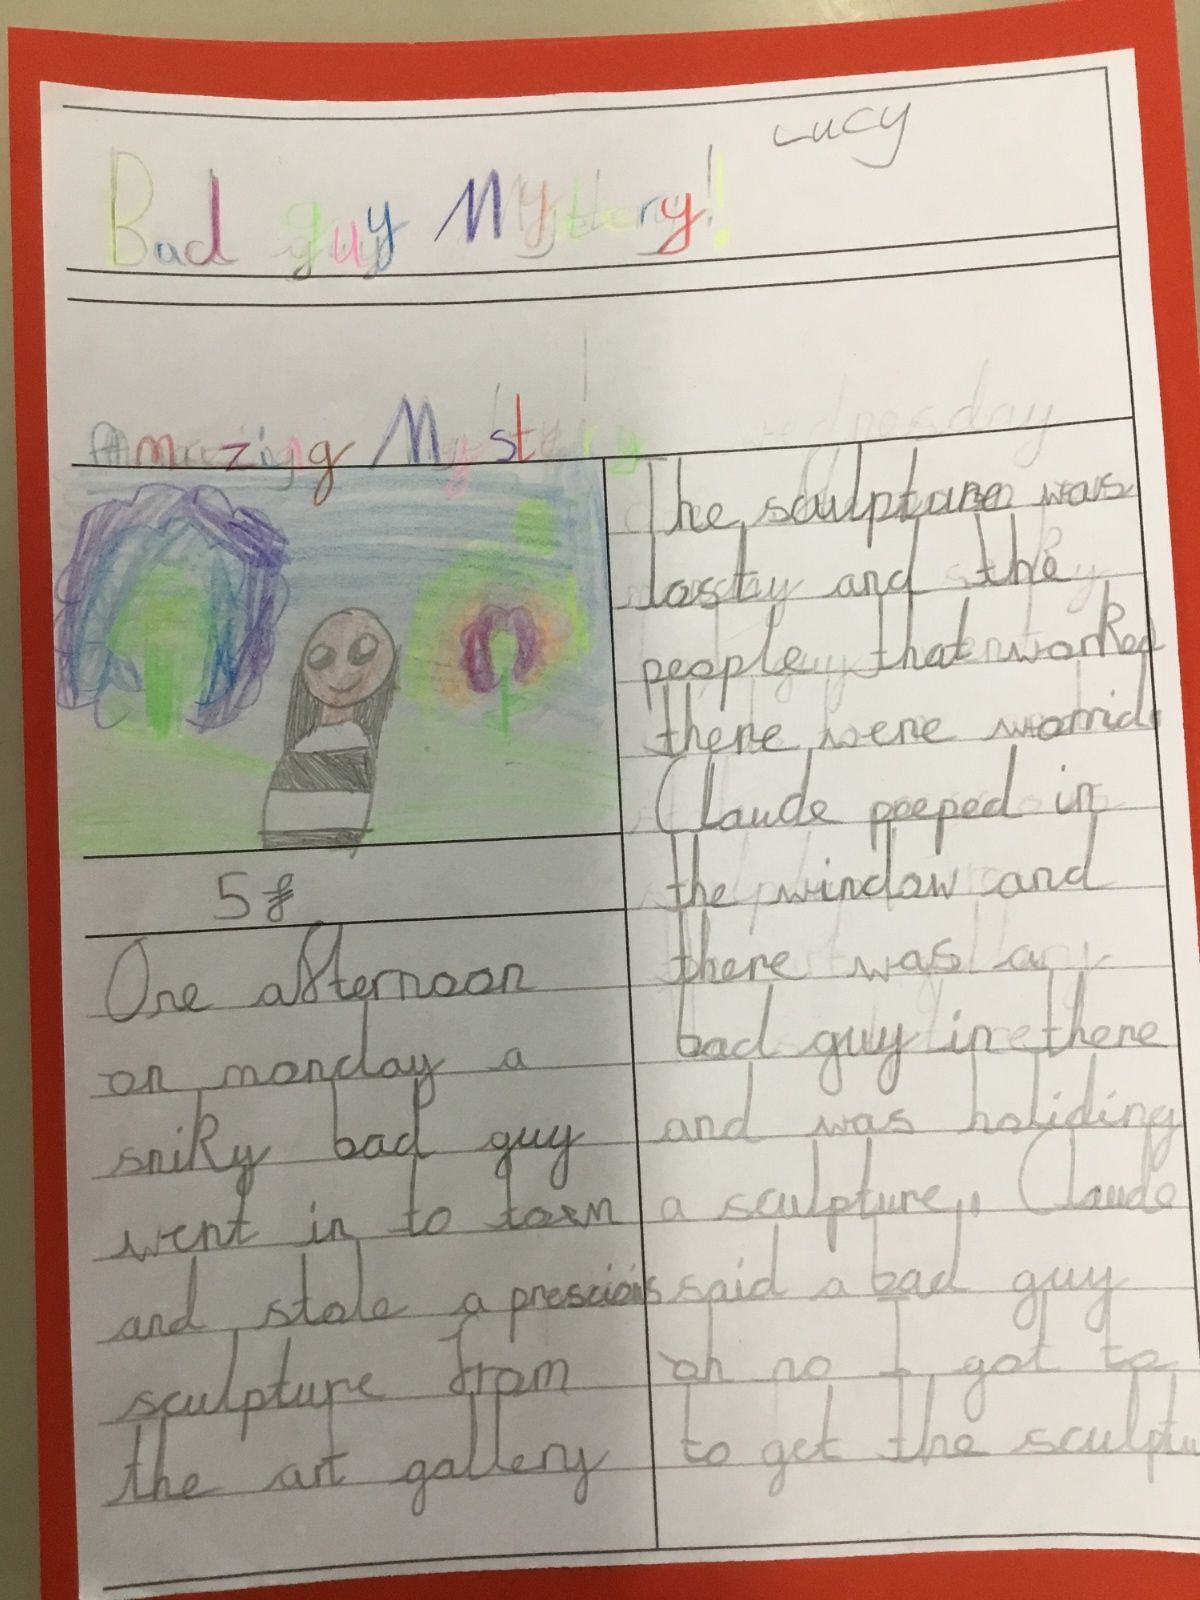 Lucy
Bad guy Mystery!
Amazing Mystery
5£
One afternoon
on monday a
sniky bad guy
went in to town
and stole a presciois
sculpture from
the art gallery
The sculpture was
lost and the
people that worked
there were worrid
Claude peeped in
the window and
there was a
bad guy in there
and was holiding
a sculpture, Claude
said a bad guy
oh no I got to
to get the sculptu